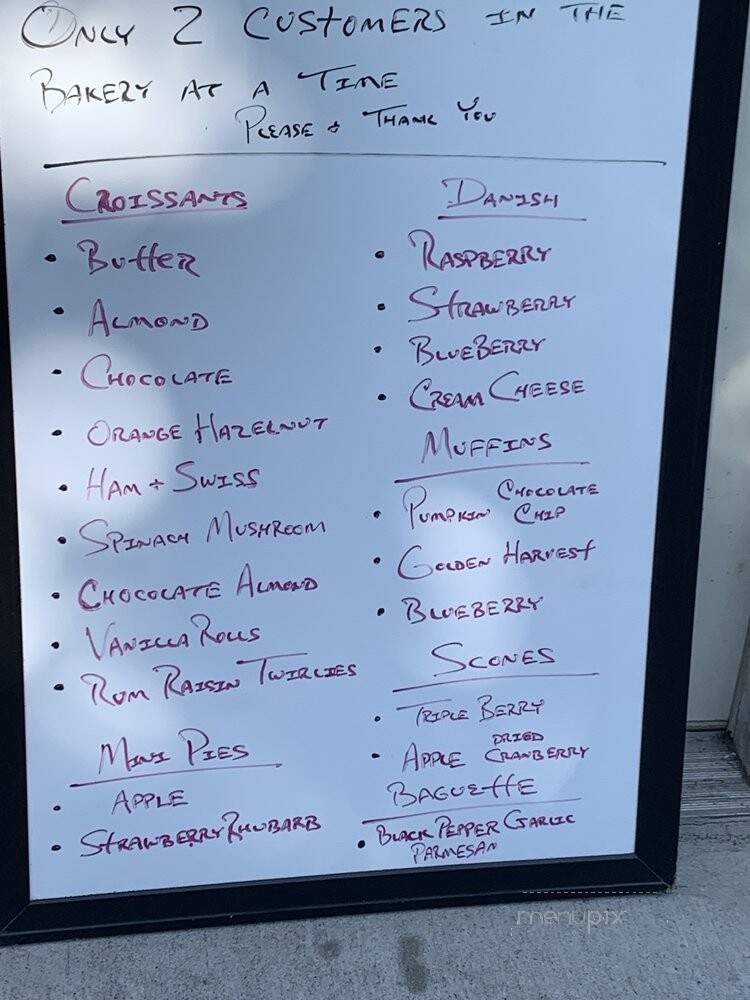 ONLY 2 CUSTOMERS IN THE
BAKERY AT A TIME
PLEASE + THANK YOU
CROISSANTS
• Butter
• ALMOND
• CHOCOLATE
• ORANGE HAZELNUT
• HAM + SWISS
• SPINACH MUSHROOM
• CHOCOLATE ALMOND
• VANILLA ROLLS
• RUM RAISIN TWIRLIES
MINI PIES
• APPLE
• STRAWBERRY RHUBARB
DANISH
• RASPBERRY
• STRAWBERRY
• BLUEBERRY
• CREAM CHEESE
MUFFINS
• PUMPKIN CHOCOLATE
CHIP
• GOLDEN HARVEST
• BLUEBERRY
SCONES
• TRIPLE BERRY
• APPLE DRIED
CRANBERRY
BAGUETTE
• BLACK PEPPER GARLIC
PARMESAN
menupix